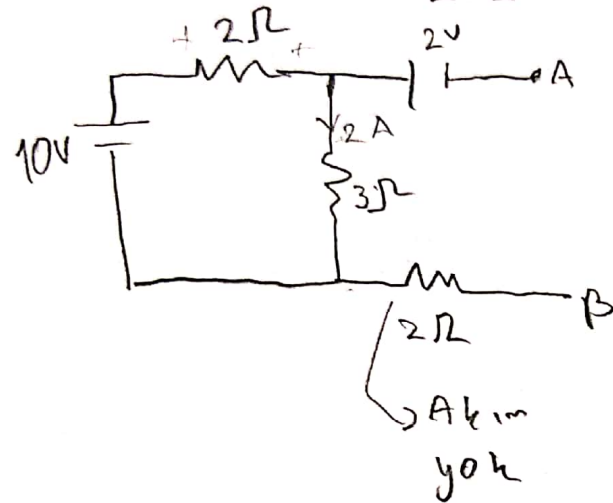 + 2Ω +
2V
A
10V
2A
3Ω
2Ω
B
Akım
yok